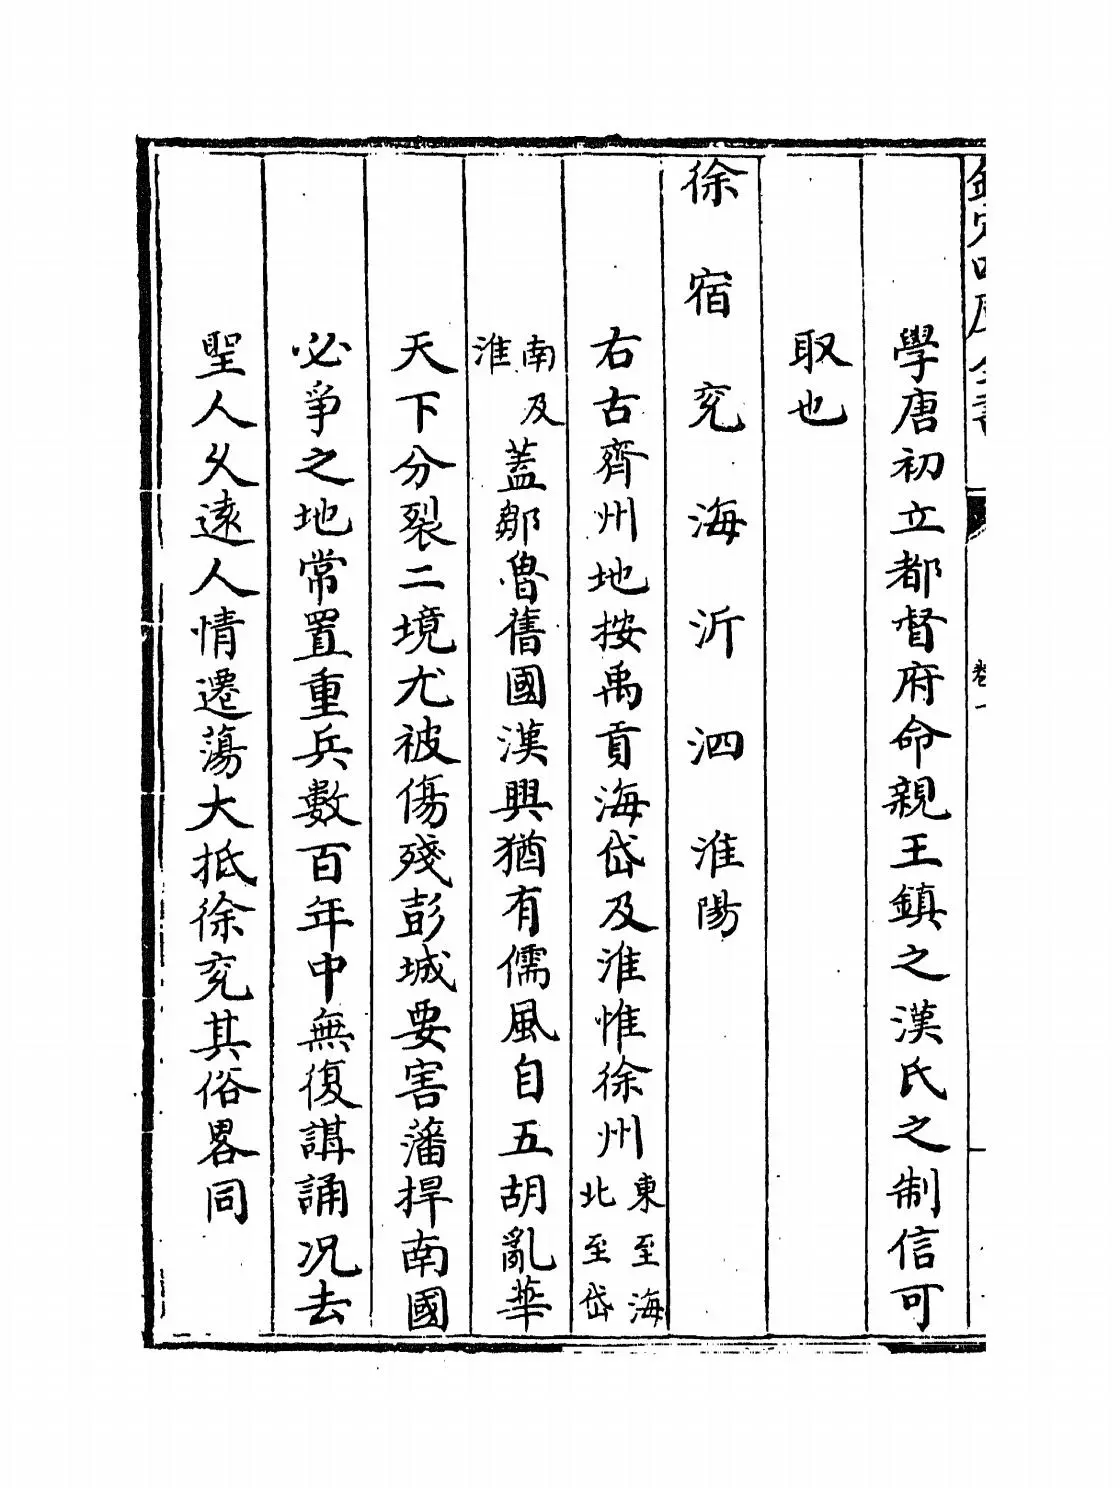 欽定四庫全書
卷一
學唐初立都督府命親王鎮之漢氏之制信可
取也
徐宿兖海沂泗淮陽
右古齊州地按禹貢海岱及淮惟徐州東至海北至岱
南及淮蓋鄒魯舊國漢興猶有儒風自五胡亂華
天下分裂二境尤被傷殘彭城要害藩捍南國
必爭之地常置重兵數百年中無復講誦况去
聖人乆逺人情遷蕩大抵徐兖其俗畧同